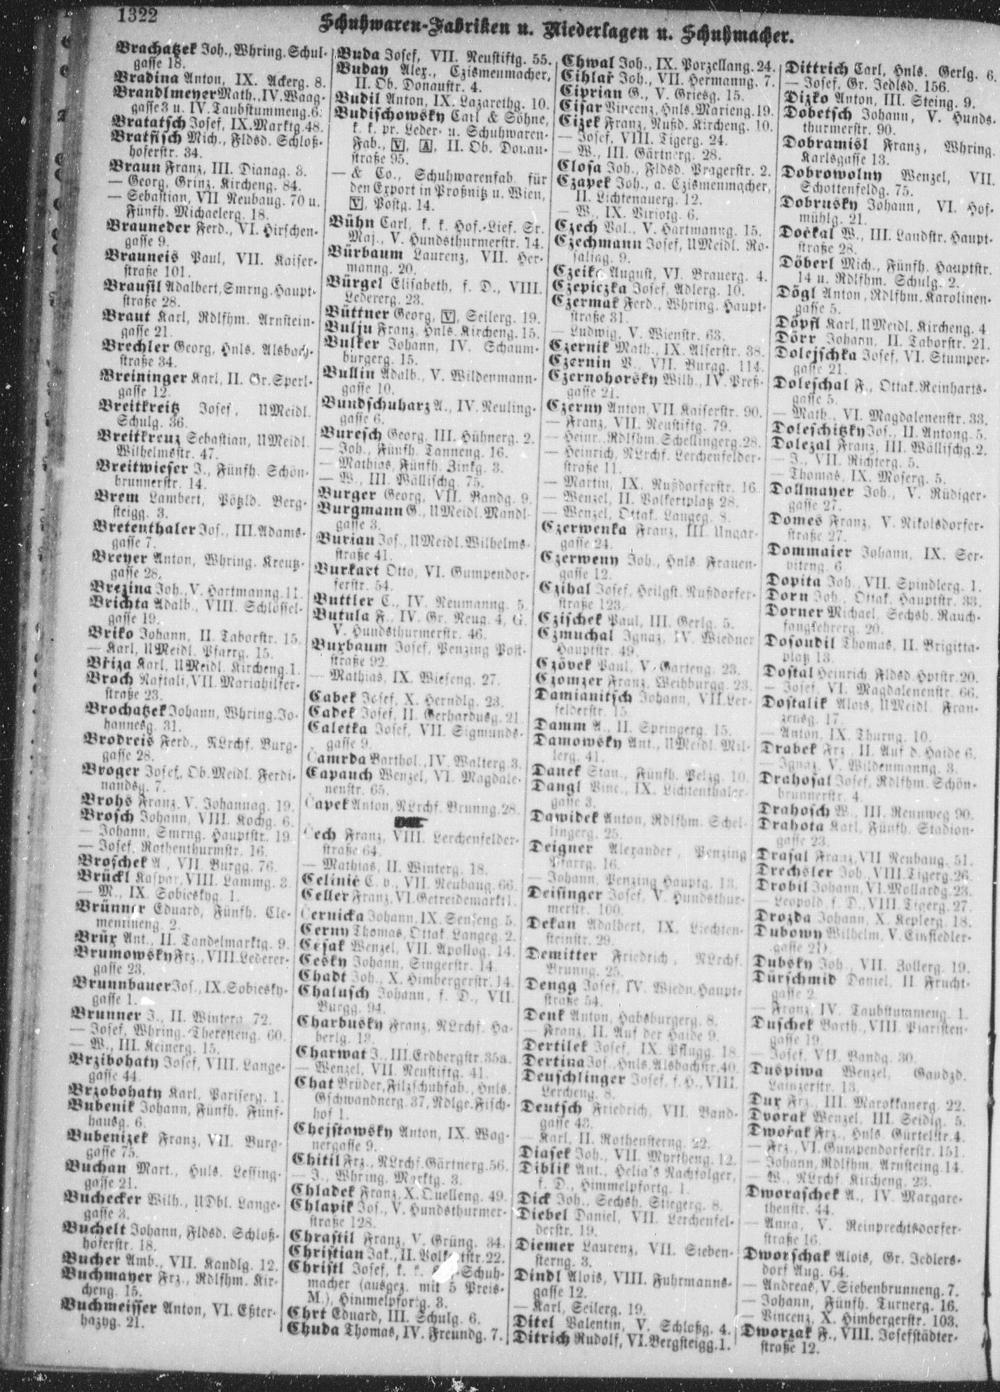 1322
Schuhwaren-Fabriken u. Niederlagen u. Schuhmacher.
Brachatzek Joh., Whring. Schul-
gasse 18.
Bradina Anton, IX. Ackerg. 8.
Brandlmeyer Math., IV. Waag-
gasse 3 u. IV. Taubstummeng. 6.
Bratatsch Josef, IX. Marktg. 48.
Bratfisch Mich., Fldsd. Schloß-
hoferstr. 34.
Braun Franz, III. Dianag. 3.
— Georg, Grinz. Kircheng. 84.
— Sebastian, VII. Neubaug. 70 u.
Fünfh. Michaelerg. 18.
Brauneder Ferd., VI. Hirschen-
gasse 9.
Brauneis Paul, VII. Kaiser-
straße 101.
Brausil Adalbert, Smrng. Haupt-
straße 28.
Braut Karl, Rdlfhm. Arnstein-
gasse 21.
Brechler Georg, Hnls. Alsbach-
straße 34.
Breininger Karl, II. Gr. Sperl-
gasse 12.
Breitkreitz Josef, UMeidl.
Schulg. 36.
Breitkreuz Sebastian, UMeidl.
Wilhelmstr. 47.
Breitwieser J., Fünfh. Schön-
brunnerstr. 14.
Brem Lambert, Pötzld. Berg-
steigg. 3.
Bretenthaler Jos., III. Adams-
gasse 7.
Breyer Anton, Whring. Kreuz-
gasse 28.
Brezina Joh., V. Hartmanng. 11.
Brichta Adalb., VIII. Schlössel-
gasse 19.
Briko Johann, II. Taborstr. 15.
— Karl, UMeidl. Pfarrg. 15.
Břiza Karl, UMeidl. Kircheng. 1.
Broch Naftali, VII. Mariahilfer-
straße 23.
Brochatzek Johann, Whring. Jo-
hannesg. 31.
Brodreis Ferd., NLrchf. Burg-
gasse 28.
Broger Josef, Ob. Meidl. Ferdi-
nandsg. 7.
Brohs Franz, V. Johannag. 19.
Brosch Johann, VIII. Kochg. 6.
— Johann, Smrng. Hauptstr. 19
— Josef, Rothenthurmstr. 16.
Broschek A., VII. Burgg. 76.
Brückl Kaspar, VIII. Lammg. 3.
— M., IX. Sobieskyg. 1.
Brünner Eduard, Fünfh. Cle-
mentineng. 2.
Brüx Ant., II. Tandelmarktg. 9.
Brumowsky Frz., VIII. Lederer-
gasse 23.
Brunnbauer Jos., IX. Sobiesky-
gasse 1.
Brunner J., II. Winterg. 72.
— Josef, Whring. Thereseng. 60.
— W., III. Keinerg. 15.
Brzibohaty Josef, VIII. Lange-
gasse 44.
Brzobohaty Karl, Pariserg. 1.
Bubenik Johann, Fünfh. Fünf-
hausg. 6.
Bubenizek Franz, VII. Burg-
gasse 75.
Buchan Mart., Hnls. Lessing-
gasse 21.
Buchecker Wilh., UDbl. Lange-
gasse 3.
Buchelt Johann, Fldsd. Schloß-
hoferstr. 18.
Bucher Amb., VII. Kandlg. 12.
Buchmayer Frz., Rdlfhm. Kir-
cheng. 15.
Buchmeisser Anton, VI. Eßter-
hazyg. 21.
Buda Josef, VII. Neustiftg. 55.
Buday Alex., Czismenmacher,
II. Ob. Donaustr. 4.
Budil Anton, IX. Lazarethg. 10.
Budischowsky Carl & Söhne,
k. k. pr. Leder- u. Schuhwaren-
Fab., V, A, II. Ob. Donau-
straße 95.
— & Co., Schuhwarenfab. für
den Export in Proßnitz u. Wien,
V, Postg. 14.
Bühn Carl, k. k. Hof.-Lief. Sr.
Maj., V. Hundsthurmerstr. 14.
Bürbaum Laurenz, VII. Her-
manng. 20.
Bürgel Elisabeth, f. D., VIII.
Ledererg. 23.
Büttner Georg, V, Seilerg. 19.
Bulju Franz, Hnls. Kircheng. 15.
Bulker Johann, IV. Schaum-
burgerg. 15.
Bullin Adalb., V. Wildenmann-
gasse 10.
Bundschuharz A., IV. Neuling-
gasse 6.
Buresch Georg, III. Hühnerg. 2.
— Joh., Fünfh. Tanneng. 16.
— Mathias, Fünfh. Zinkg. 3.
— W., III. Wällischg. 75.
Burger Georg, VII. Bandg. 9.
Burgmann G., UMeidl. Mandl-
gasse 3.
Burian Jos., UMeidl. Wilhelms-
straße 41.
Burkart Otto, VI. Gumpendor-
ferstr. 54.
Buttler C., IV. Neumanng. 5.
Butula F., IV. Gr. Neug. 4, G.
V. Hundsthurmerstr. 46.
Buxbaum Josef, Penzing Post-
straße 92.
— Mathias, IX. Wieseng. 27.
Cabek Josef, X. Herndlg. 23.
Cadek Josef, II. Gerhardusg. 21.
Caletka Josef, VII. Sigmunds-
gasse 9.
Camrda Barthol., IV. Walterg. 3.
Capauch Wenzel, VI. Magdale-
nenstr. 65.
Capek Anton, NLrchf. Brunng. 28.
Cech Franz, VIII. Lerchenfelder-
straße 64.
— Mathias, II. Winterg. 18.
Celinic C. v., VII. Neubaug. 66.
Celler Franz, VI. Getreidemarkt 1.
Cernicka Johann, IX. Senseng. 5.
Cerny Thomas, Ottak. Langeg. 2.
Cesak Wenzel, VII. Apollog. 14.
Cesky Johann, Singerstr. 14.
Chadt Joh., X. Himbergerstr. 14.
Chalusch Johann, f. D., VII.
Burgg. 94.
Charbusky Franz, NLrchf. Ha-
berlg. 13.
Charwat J., III. Erdbergstr. 35a.
— Wenzel, VII. Neustiftg. 41.
Chat Brüder, Filzschuhfab., Hnls.
Gschwandnerg. 37, Rdlge. Fisch-
hof 1.
Chejstowsky Anton, IX. Wag-
nergasse 9.
Chitil Frz., NLrchf. Gärtnerg. 56.
— J., Whring. Marktg. 3.
Chladek Franz, X. Quelleng. 49.
Chlapik Jos., V. Hundsthurmer-
straße 128.
Chrastil Franz, V. Grüng. 34.
Christian Jak., II. Volkertstr. 22.
Christl Josef, k. k. Schuh-
macher (ausgez. mit 5 Preis-
M.), Himmelpfortg. 3.
Chrt Eduard, III. Schulg. 6.
Chuda Thomas, IV. Freundg. 7.
Chwal Joh., IX. Porzellang. 24.
Cihlař Joh., VII. Hermanng. 7.
Ciprian G., V. Griesg. 15.
Cisar Vincenz, Hnls. Marieng. 19.
Cizek Franz, Nußd. Kircheng. 10.
— Josef, VIII. Tigerg. 24.
— W., III. Gärtnerg. 28.
Closa Joh., Fldsd. Pragerstr. 2.
Czapek Joh., a. Czismenmacher,
II. Lichtenauerg. 12.
— W., IX. Viriotg. 6.
Czech Val., V. Hartmanng. 15.
Czechmann Josef, UMeidl. Ro-
saliag. 9.
Czeike August, VI. Brauerg. 4.
Czepiczka Josef, Adlerg. 10.
Czermak Ferd., Whring. Haupt-
straße 31.
— Ludwig, V. Wienstr. 63.
Czernik Math., IX. Alserstr. 38.
Czernin V., VII. Burgg. 114.
Czernohorsky Wilh., IV. Preß-
gasse 21.
Czerny Anton, VII. Kaiserstr. 90.
— Franz, VII. Neustiftg. 79.
— Heinr., Rdlfhm. Schellingerg. 28.
— Heinrich, NLrchf. Lerchenfelder-
straße 11.
— Martin, IX. Nußdorferstr. 16.
— Wenzel, II. Volkertplatz 28.
— Wenzel, Ottak. Langeg. 8.
Czerwenka Franz, III. Ungar-
gasse 24.
Czerweny Joh., Hnls. Frauen-
gasse 12.
Czihal Josef, Heilgst. Nußdorfer-
straße 123.
Czischek Paul, III. Gerlg. 5.
Czmuchal Ignaz, IV. Wiedner
Hauptstr. 49.
Czövek Paul, V. Garteng. 23.
Czomzer Franz, Weihburgg. 23.
Damianitsch Johann, VII. Ler-
felderstr. 15.
Damm A., II. Springerg. 15.
Damowsky Ant., UMeidl. Mil-
lerg. 41.
Danek Stan., Fünfh. Pelzg. 10.
Dangl Vinc., IX. Lichtenthaler-
gasse 3.
Dawidek Anton, Rdlfhm. Schel-
lingerg. 25.
Deigner Alexander, Penzing
Pfarrg. 16.
— Johann, Penzing Hauptg. 13.
Deisinger Josef, V. Hundsthur-
merstr. 100.
Dekan Adalbert, IX. Liechten-
steinstr. 29.
Demitter Friedrich, NLrchf.
Brunng. 25.
Dengg Josef, IV. Wiedn. Haupt-
straße 54.
Denk Anton, Habsburgerg. 8.
— Franz, II. Auf der Haide 9.
Dertilek Josef, IX. Pflugg. 18.
Dertina Jos., Hnls. Alsbachstr. 40.
Deuschlinger Josef, f. H., VIII.
Lercheng. 8.
Deutsch Friedrich, VII. Band-
gasse 43.
— Karl, II. Rothensterng. 22.
Diasek Joh., VII. Myrtheng. 12.
Diblik Ant., Helia's Nachfolger,
f. D., Himmelpfortg. 1.
Dick Joh., Sechsh. Stiegerg. 8.
Diebel Daniel, VII. Lerchenfel-
derstr. 19.
Diemer Laurenz, VII. Sieben-
sterng. 3.
Dindl Alois, VIII. Fuhrmanns-
gasse 12.
— Karl, Seilerg. 19.
Ditel Valentin, V. Schloßg. 4.
Ditrich Rudolf, VI. Bergsteigg. 1.
Dittrich Carl, Hnls. Gerlg. 6.
— Josef, Gr. Jedlsd. 156.
Dizko Anton, III. Steing. 9.
Dobetsch Johann, V. Hunds-
thurmerstr. 90.
Dobramisl Franz, Whring.
Karlsgasse 13.
Dobrowolny Wenzel, VII.
Schottenfeldg. 75.
Dobrusky Johann, VI. Hof-
mühlg. 21.
Dočkal W., III. Landstr. Haupt-
straße 28.
Döberl Mich., Fünfh. Hauptstr.
14 u. Rdlfhm. Schulg. 2.
Dögl Anton, Rdlfhm. Karolinen-
gasse 5.
Döpfl Karl, UMeidl. Kircheng. 4
Dörr Johann, II. Taborstr. 21.
Dolejschka Josef, VI. Stumper-
gasse 21.
Doleschal F., Ottak. Reinharts-
gasse 5.
— Math., VI. Magdalenenstr. 33.
Doleschitzky Jos., II. Antong. 5.
Dolezal Franz, III. Wällischg. 2.
— J., VII. Richterg. 5.
— Thomas, IX. Moserg. 5.
Dollmayer Joh., V. Rüdiger-
gasse 27.
Domes Franz, V. Nikolsdorfer-
straße 27.
Dommaier Johann, IX. Ser-
viteng. 6.
Dopita Joh., VII. Spindlerg. 1.
Dorn Joh., Ottak. Hauptstr. 33.
Dorner Michael, Sechsh. Rauch-
fangkehrerg. 20.
Dosoudil Thomas, II. Brigitta-
platz 13.
Dostal Heinrich, Fldsd. Hptstr. 20.
— Josef, VI. Magdalenenstr. 66.
Dostalik Alois, UMeidl. Fran-
zensg. 17.
— Anton, IX. Thurng. 10.
Drabek Frz., II. Auf d. Haide 6.
— Ignaz, V. Wildenmanng. 3.
Drahosal Josef, Rdlfhm. Schön-
brunnerstr. 4.
Drahosch W., III. Rennweg 90.
Drahota Karl, Fünfh. Stadion-
gasse 23.
Drasal Franz, VII. Neubaug. 51.
Drechsler Joh., VIII. Tigerg. 26.
Drobil Johann, VI. Mollardg. 23.
— Leopold, f. D., VIII. Tigerg. 27.
Drozda Johann, X. Keplerg. 18.
Dubowy Wilhelm, V. Einsiedler-
gasse 21.
Dubsky Joh., VII. Zollerg. 19.
Dürschmid Daniel, II. Frucht-
gasse 2.
— Franz, IV. Taubstummeng. 1.
Duschek Barth., VIII. Piaristen-
gasse 19.
— Josef, VII. Bandg. 30.
Duspiwa Wenzel, Gaudzd.
Lainzerstr. 13.
Dux Frz., III. Marokkanerg. 22.
Dvorak Wenzel, III. Seidlg. 5.
Dwořak Frz., Hnls. Gürtelstr. 4.
— Frz., VI. Gumpendorferstr. 151.
— Johann, Rdlfhm. Arnsteing. 14.
— W., NLrchf. Kircheng. 23.
Dworaschek A., IV. Margare-
thenstr. 44.
— Anna, V. Reinprechtsdorfer-
straße 16.
Dworschak Alois, Gr. Jedlers-
dorf Aug. 64.
— Andreas, V. Siebenbrunneng. 7.
— Johann, Fünfh. Turnerg. 16.
— Vincenz, X. Himbergerstr. 103.
Dworzak F., VIII. Josefstädter-
straße 12.